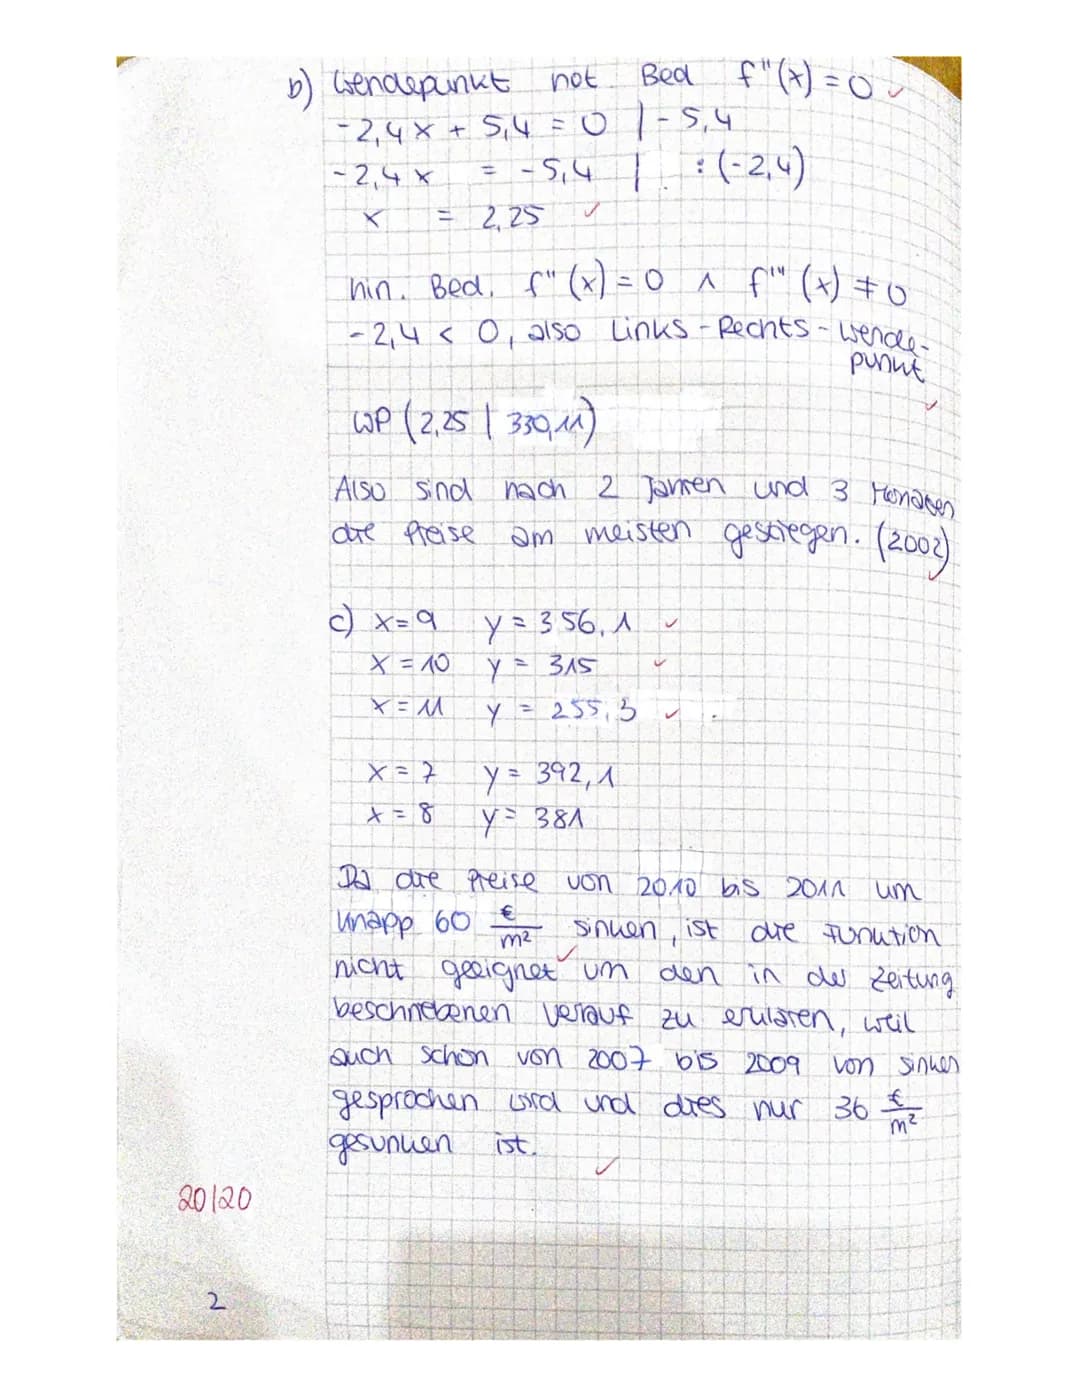 b) Wendepunkt not. Bed f"(x) = 0 ✓
-2,4x + 5,4 = 0 | - 5,4
-2,4x = -5,4 | : (-2,4)
x = 2,25 ✓
hin. Bed. f"(x) = 0 ∧ f'''(x) ≠ 0
-2,4 < 0, also Links-Rechts-Wende-
punkt ✓
WP (2,25 | 330,11)
Also sind nach 2 Jahren und 3 Monaten
die Preise am meisten gestiegen. (2002) ✓
c) x=9 y = 356,1 ✓
x = 10 y = 315 ✓
x = 11 y = 255,3 ✓
x = 7 y = 392,1
x = 8 y = 381
Da die Preise von 2010 bis 2011 um
knapp 60 €/m² sinken, ist die Funktion
nicht geeignet ✓ um den in der Zeitung
beschriebenen Verlauf zu erklären, weil
auch schon von 2007 bis 2009 von sinken
gesprochen wird und dies nur 36 €/m²
gesunken ist. ✓
20/20
2